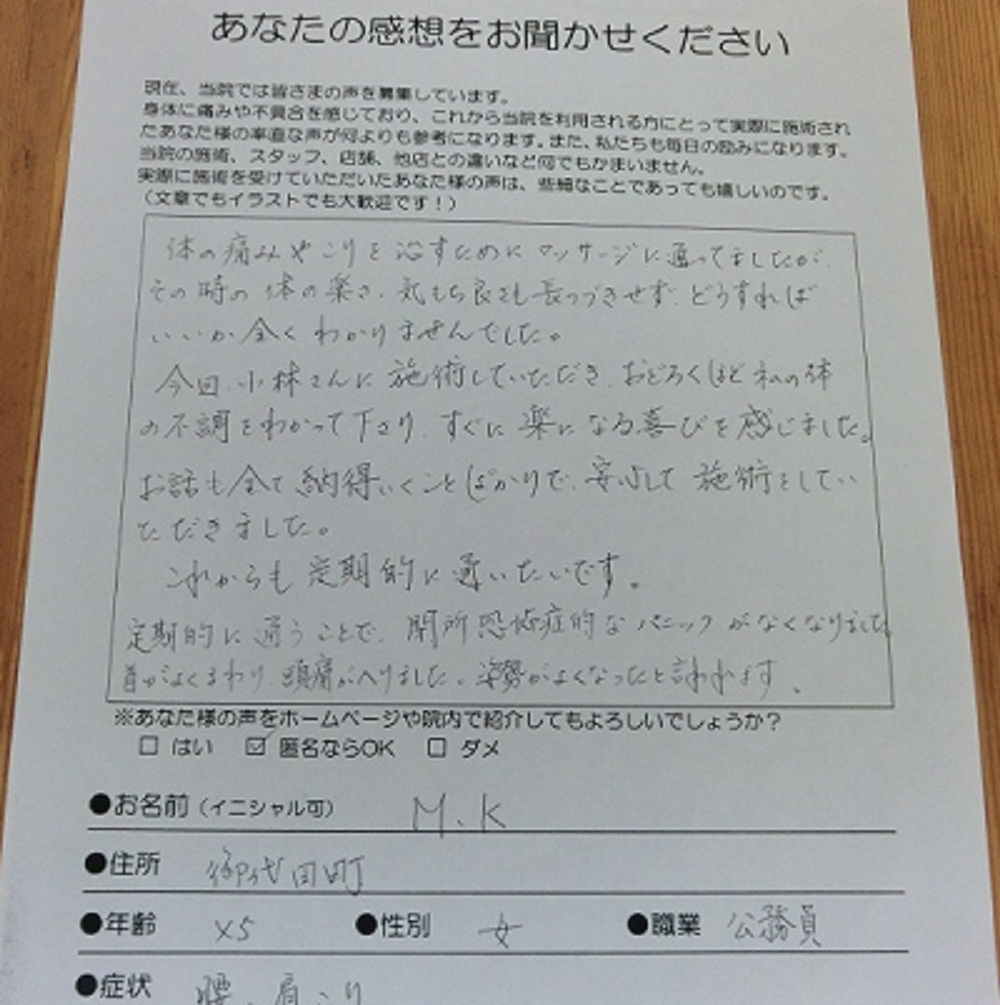 あなたの感想をお聞かせください
現在、当院では皆さまの声を募集しています。
身体に痛みや不具合を感じており、これから当院を利用される方にとって実際に施術され
たあなた様の率直な声が何よりも参考になります。また、私たちも毎日の励みになります。
当院の施術、スタッフ、店舗、他店との違いなど何でもかまいません。
実際に施術を受けていただいたあなた様の声は、些細なことであっても嬉しいのです。
（文章でもイラストでも大歓迎です！）
体の痛みやこりを治すためにマッサージに通ってましたが、
その時の体の楽さ、気もち良さも長つづきせず、どうすれば
いいか全くわかりませんでした。
今回、小林さんに施術していただき、おどろくほど私の体
の不調をわかって下さり、すぐに楽になる喜びを感じました。
お話も全て納得いくことばかりで、安心して施術をしてい
ただきました。
これからも定期的に通いたいです。
定期的に通うことで、閉所恐怖症的なパニックがなくなりました
首がよくまわり、頭痛がへりました。姿勢がよくなったと言われます。
※あなた様の声をホームページや院内で紹介してもよろしいでしょうか？
□ はい ☑ 匿名ならOK □ ダメ
●お名前（イニシャル可） M.K
●住所 御代田町
●年齢 x5 ●性別 女 ●職業 公務員
●症状 腰、肩こり